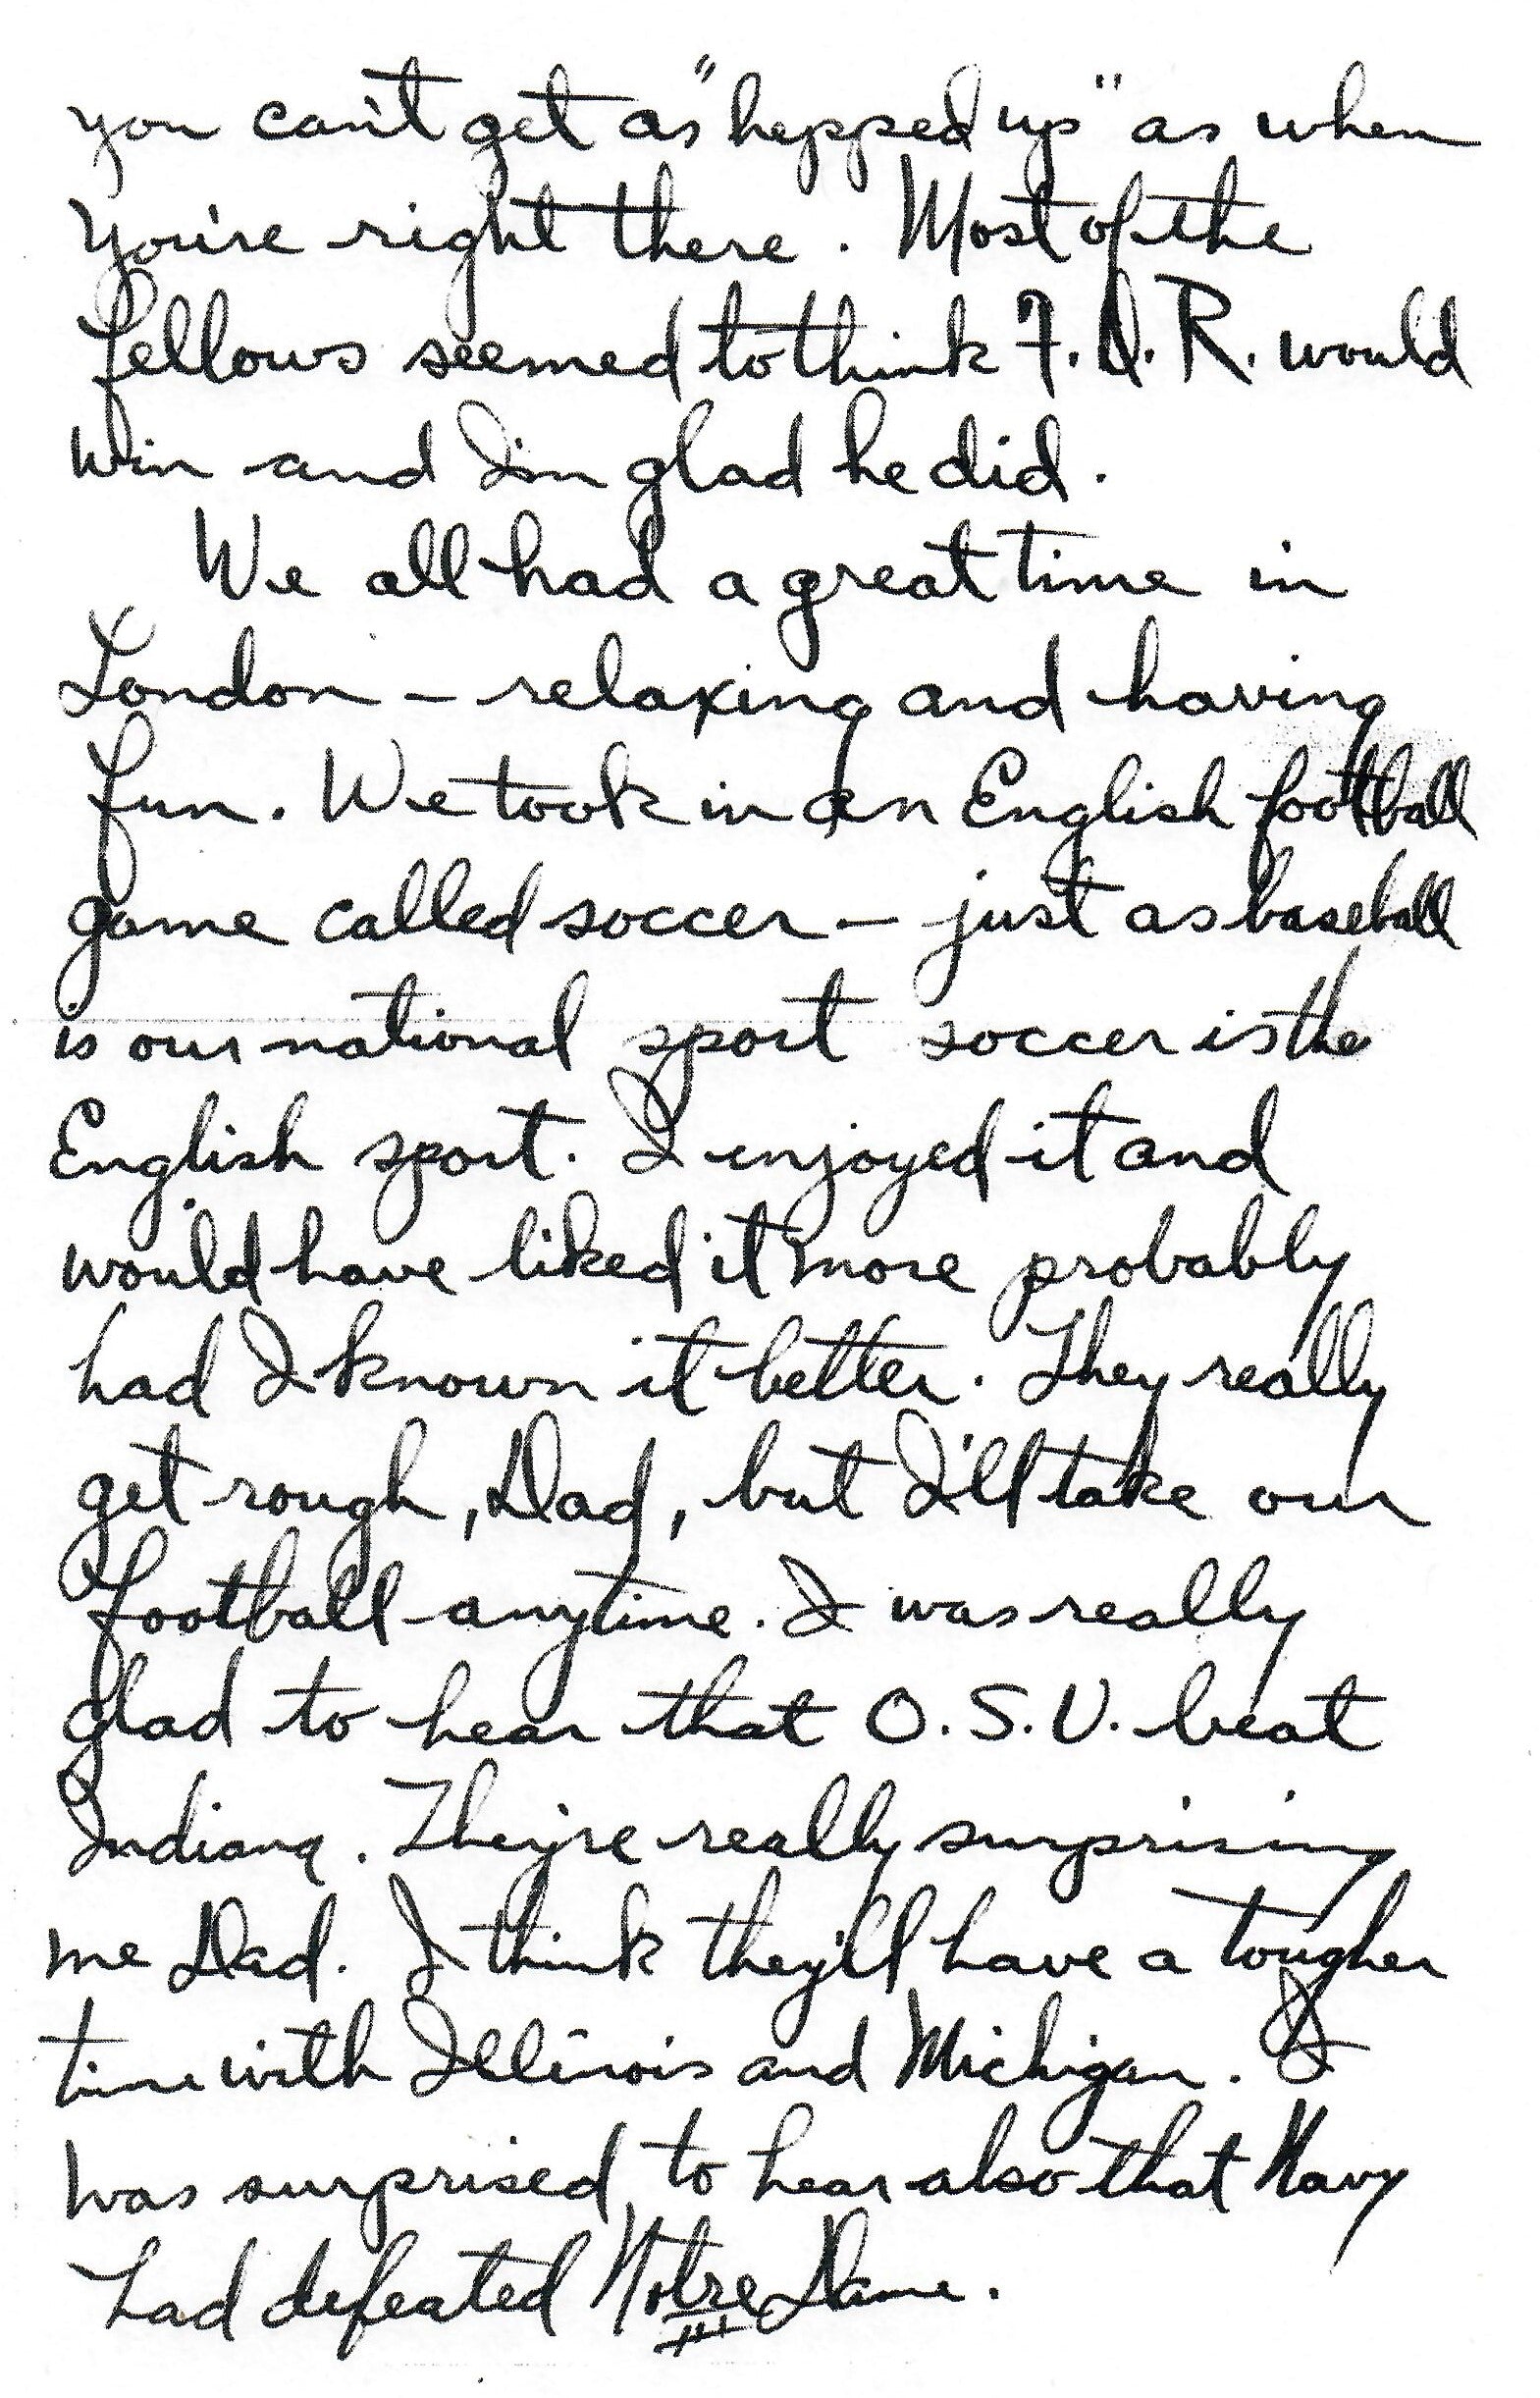 you can't get as "hepped up" as when
you're right there. Most of the
fellows seemed to think F.D.R. would
win and I'm glad he did.
We all had a great time in
London - relaxing and having
fun. We took in an English football
game called soccer - just as baseball
is our national sport soccer is the
English sport. I enjoyed it and
would have liked it more probably
had I known it better. They really
get rough, Dad, but I'll take our
football anytime. I was really
glad to hear that O.S.U. beat
Indiana. They're really surprising
me Dad. I think they'll have a tougher
time with Illinois and Michigan. I
was surprised to hear also that Navy
had defeated Notre Dame.
III